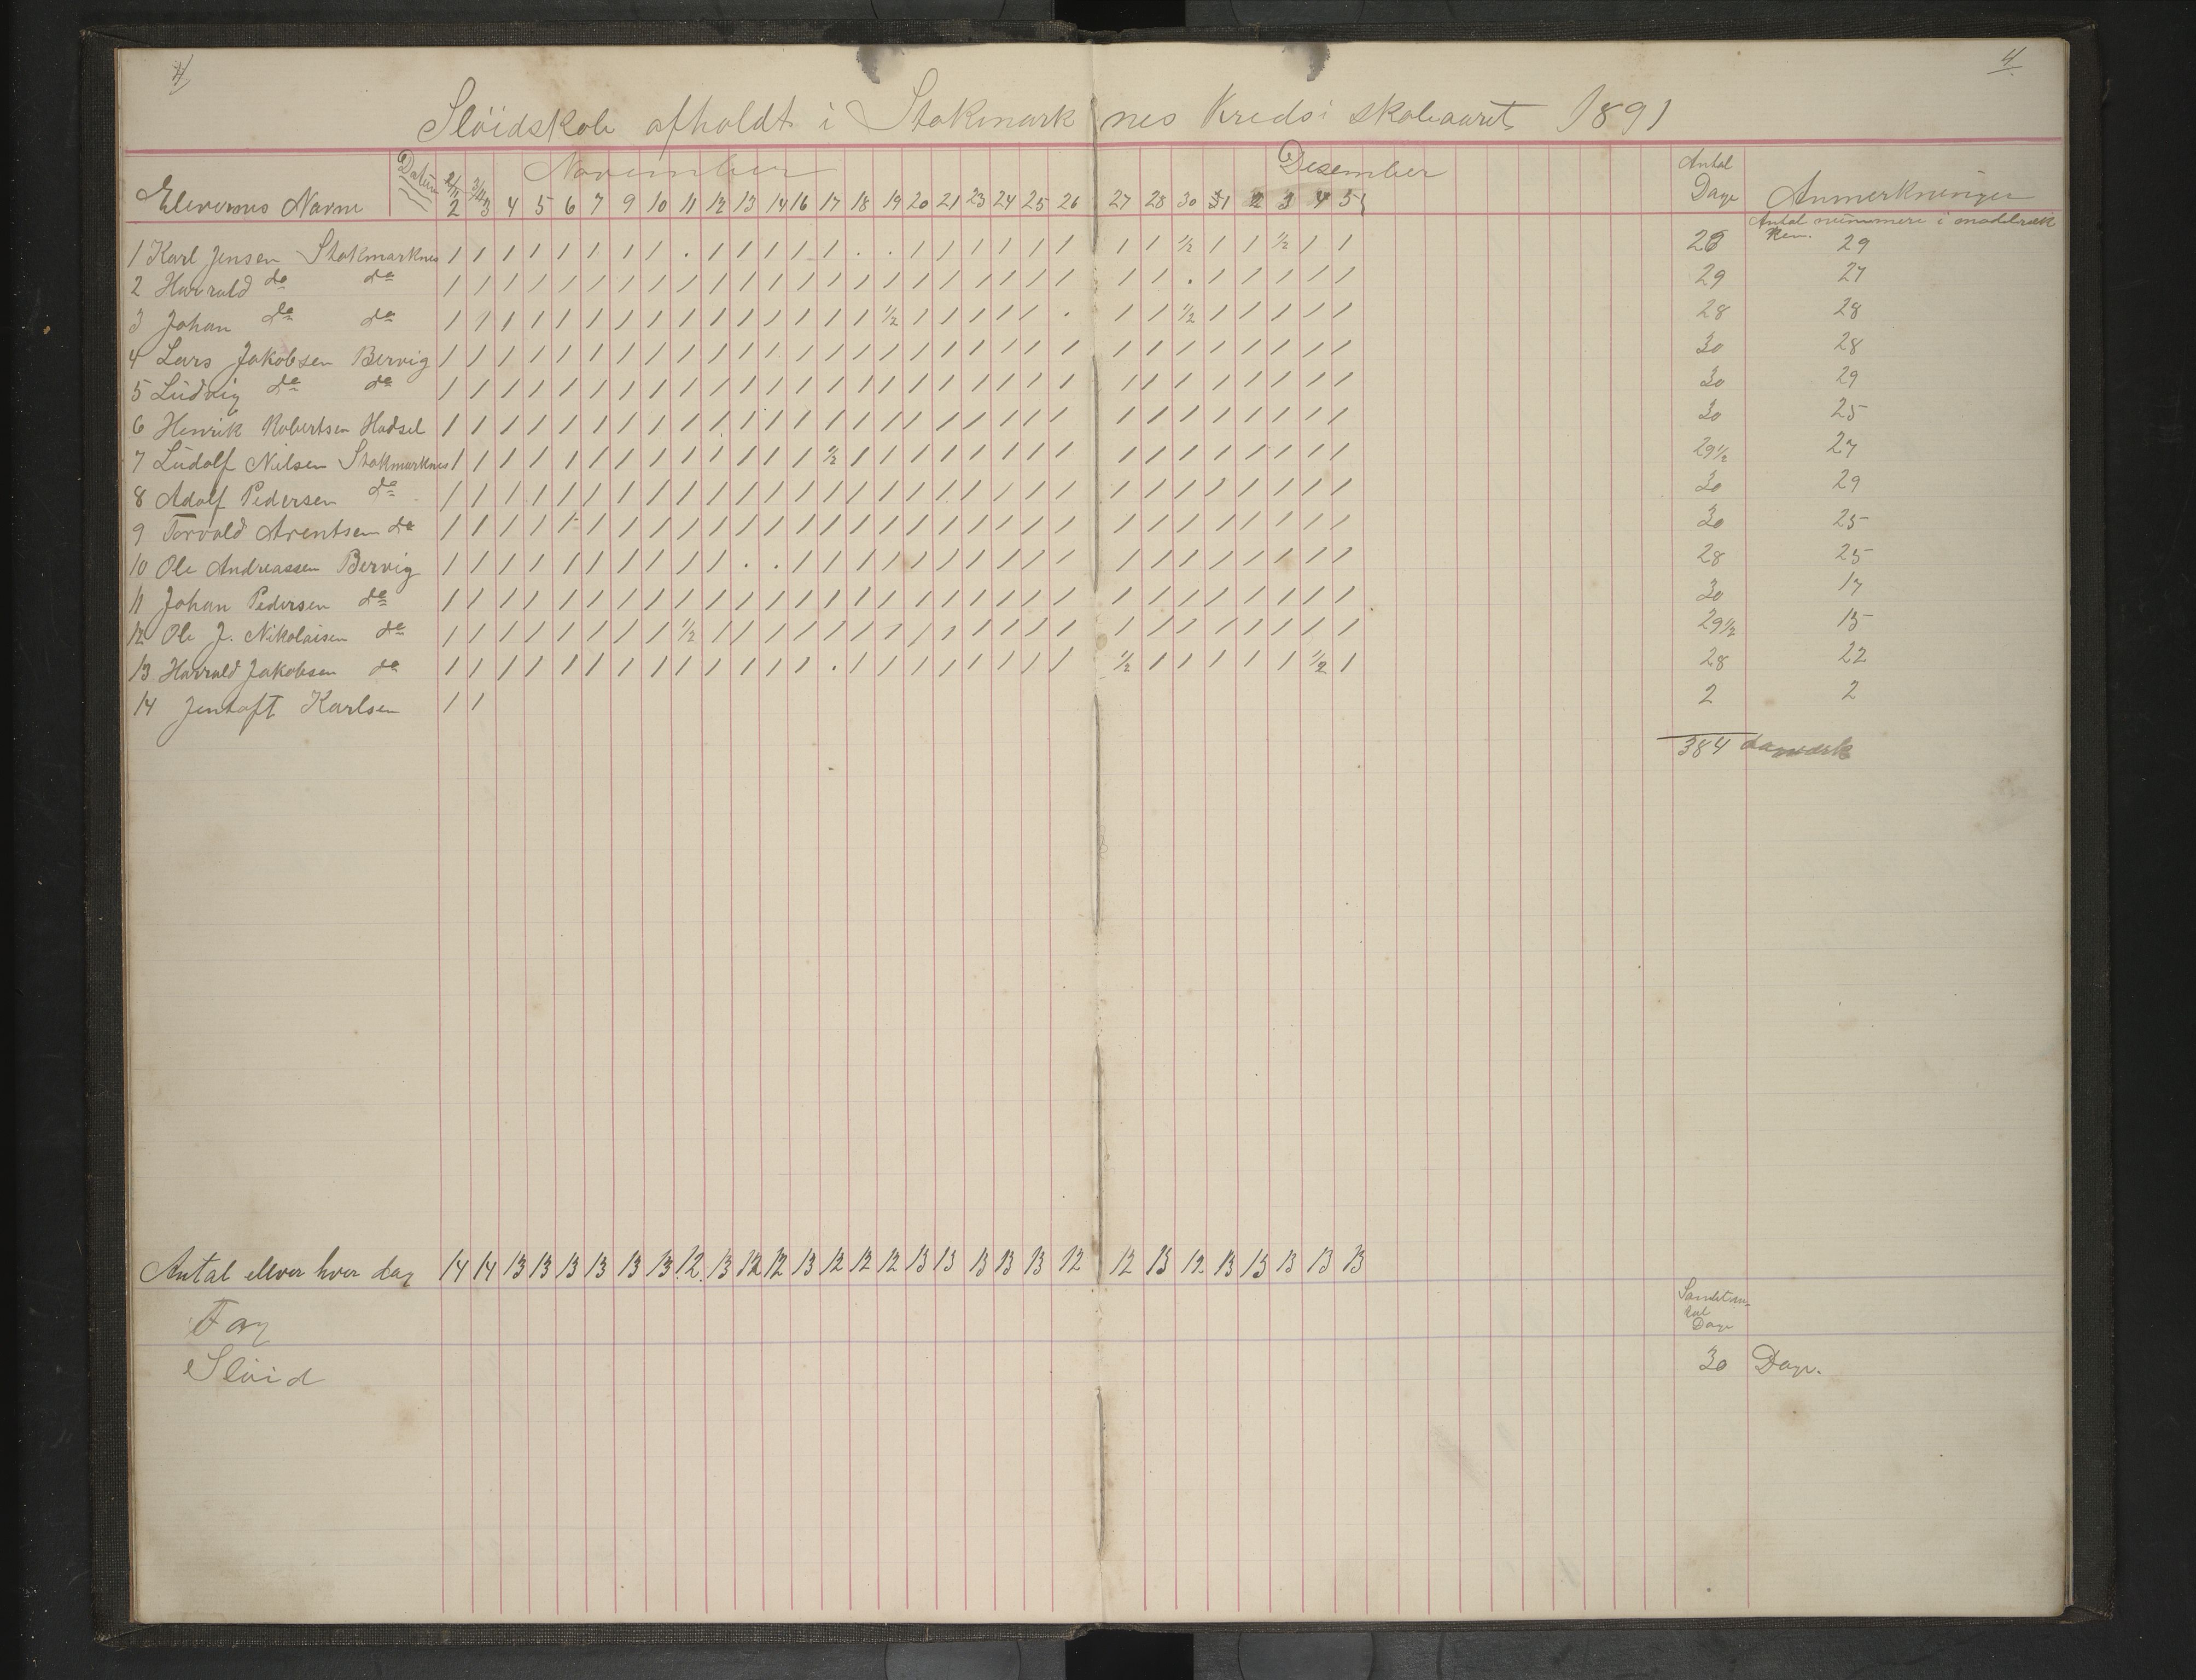 4 4
Slöidskole afholdt i Stokmarknes Kreds i skoleaaret 1891
Datum November Desember Antal
Elevernes Navne 2/11 3/11 Dage Anmerkninger
2 3 4 5 6 7 9 10 11 12 13 14 16 17 18 19 20 21 23 24 25 26 27 28 30 1 2 3 4 5
Antal nummere i modelrækken
1 Karl Jensen Stokmarknes 1 1 1 1 1 1 1 1 . 1 1 1 1 1 . . 1 1 1 1 1 1 1 1 ½ 1 1 ½ 1 1 26 29
2 Harrald do do 1 1 1 1 1 1 1 1 1 1 1 1 1 1 1 1 1 1 1 1 1 1 1 1 . 1 1 1 1 1 29 27
3 Johan do do 1 1 1 1 1 1 1 1 1 1 1 1 1 1 1 ½ 1 1 1 1 1 . 1 1 ½ 1 1 1 1 1 28 28
4 Lars Jakobsen Bervig 1 1 1 1 1 1 1 1 1 1 1 1 1 1 1 1 1 1 1 1 1 1 1 1 1 1 1 1 1 1 30 28
5 Ludvig do do 1 1 1 1 1 1 1 1 1 1 1 1 1 1 1 1 1 1 1 1 1 1 1 1 1 1 1 1 1 1 30 29
6 Henrik Robertsen Hadsel 1 1 1 1 1 1 1 1 1 1 1 1 1 1 1 1 1 1 1 1 1 1 1 1 1 1 1 1 1 1 30 25
7 Ludolf Nilsen Stokmarknes 1 1 1 1 1 1 1 1 1 1 1 1 1 ½ 1 1 1 1 1 1 1 1 1 1 1 1 1 1 1 1 29½ 27
8 Adolf Pedersen do 1 1 1 1 1 1 1 1 1 1 1 1 1 1 1 1 1 1 1 1 1 1 1 1 1 1 1 1 1 1 30 29
9 Torvald Arentsen do 1 1 1 1 1 1 1 1 1 1 1 1 1 1 1 1 1 1 1 1 1 1 1 1 1 1 1 1 1 1 30 25
10 Ole Andreassen Bervig 1 1 1 1 1 1 1 1 1 1 . . 1 1 1 1 1 1 1 1 1 1 1 1 1 1 1 1 1 1 28 25
11 Johan Pedersen do 1 1 1 1 1 1 1 1 1 1 1 1 1 1 1 1 1 1 1 1 1 1 1 1 1 1 1 1 1 1 30 17
12 Ole J. Nikolaisen do 1 1 1 1 1 1 1 1 ½ 1 1 1 1 1 1 1 1 1 1 1 1 1 1 1 1 1 1 1 1 1 29½ 15
13 Harrald Jakobsen do 1 1 1 1 1 1 1 1 1 1 1 1 1 . 1 1 1 1 1 1 1 1 ½ 1 1 1 1 1 ½ 1 28 22
14 Jentoft Karlsen 1 1 2 2
384 dagverk
Antal elever hver dag 14 14 13 13 13 13 13 13 12 13 12 12 13 12 12 12 13 13 13 13 13 12 12 13 12 13 13 13 13 13
Fag Dage
Slöid 30 Dage.